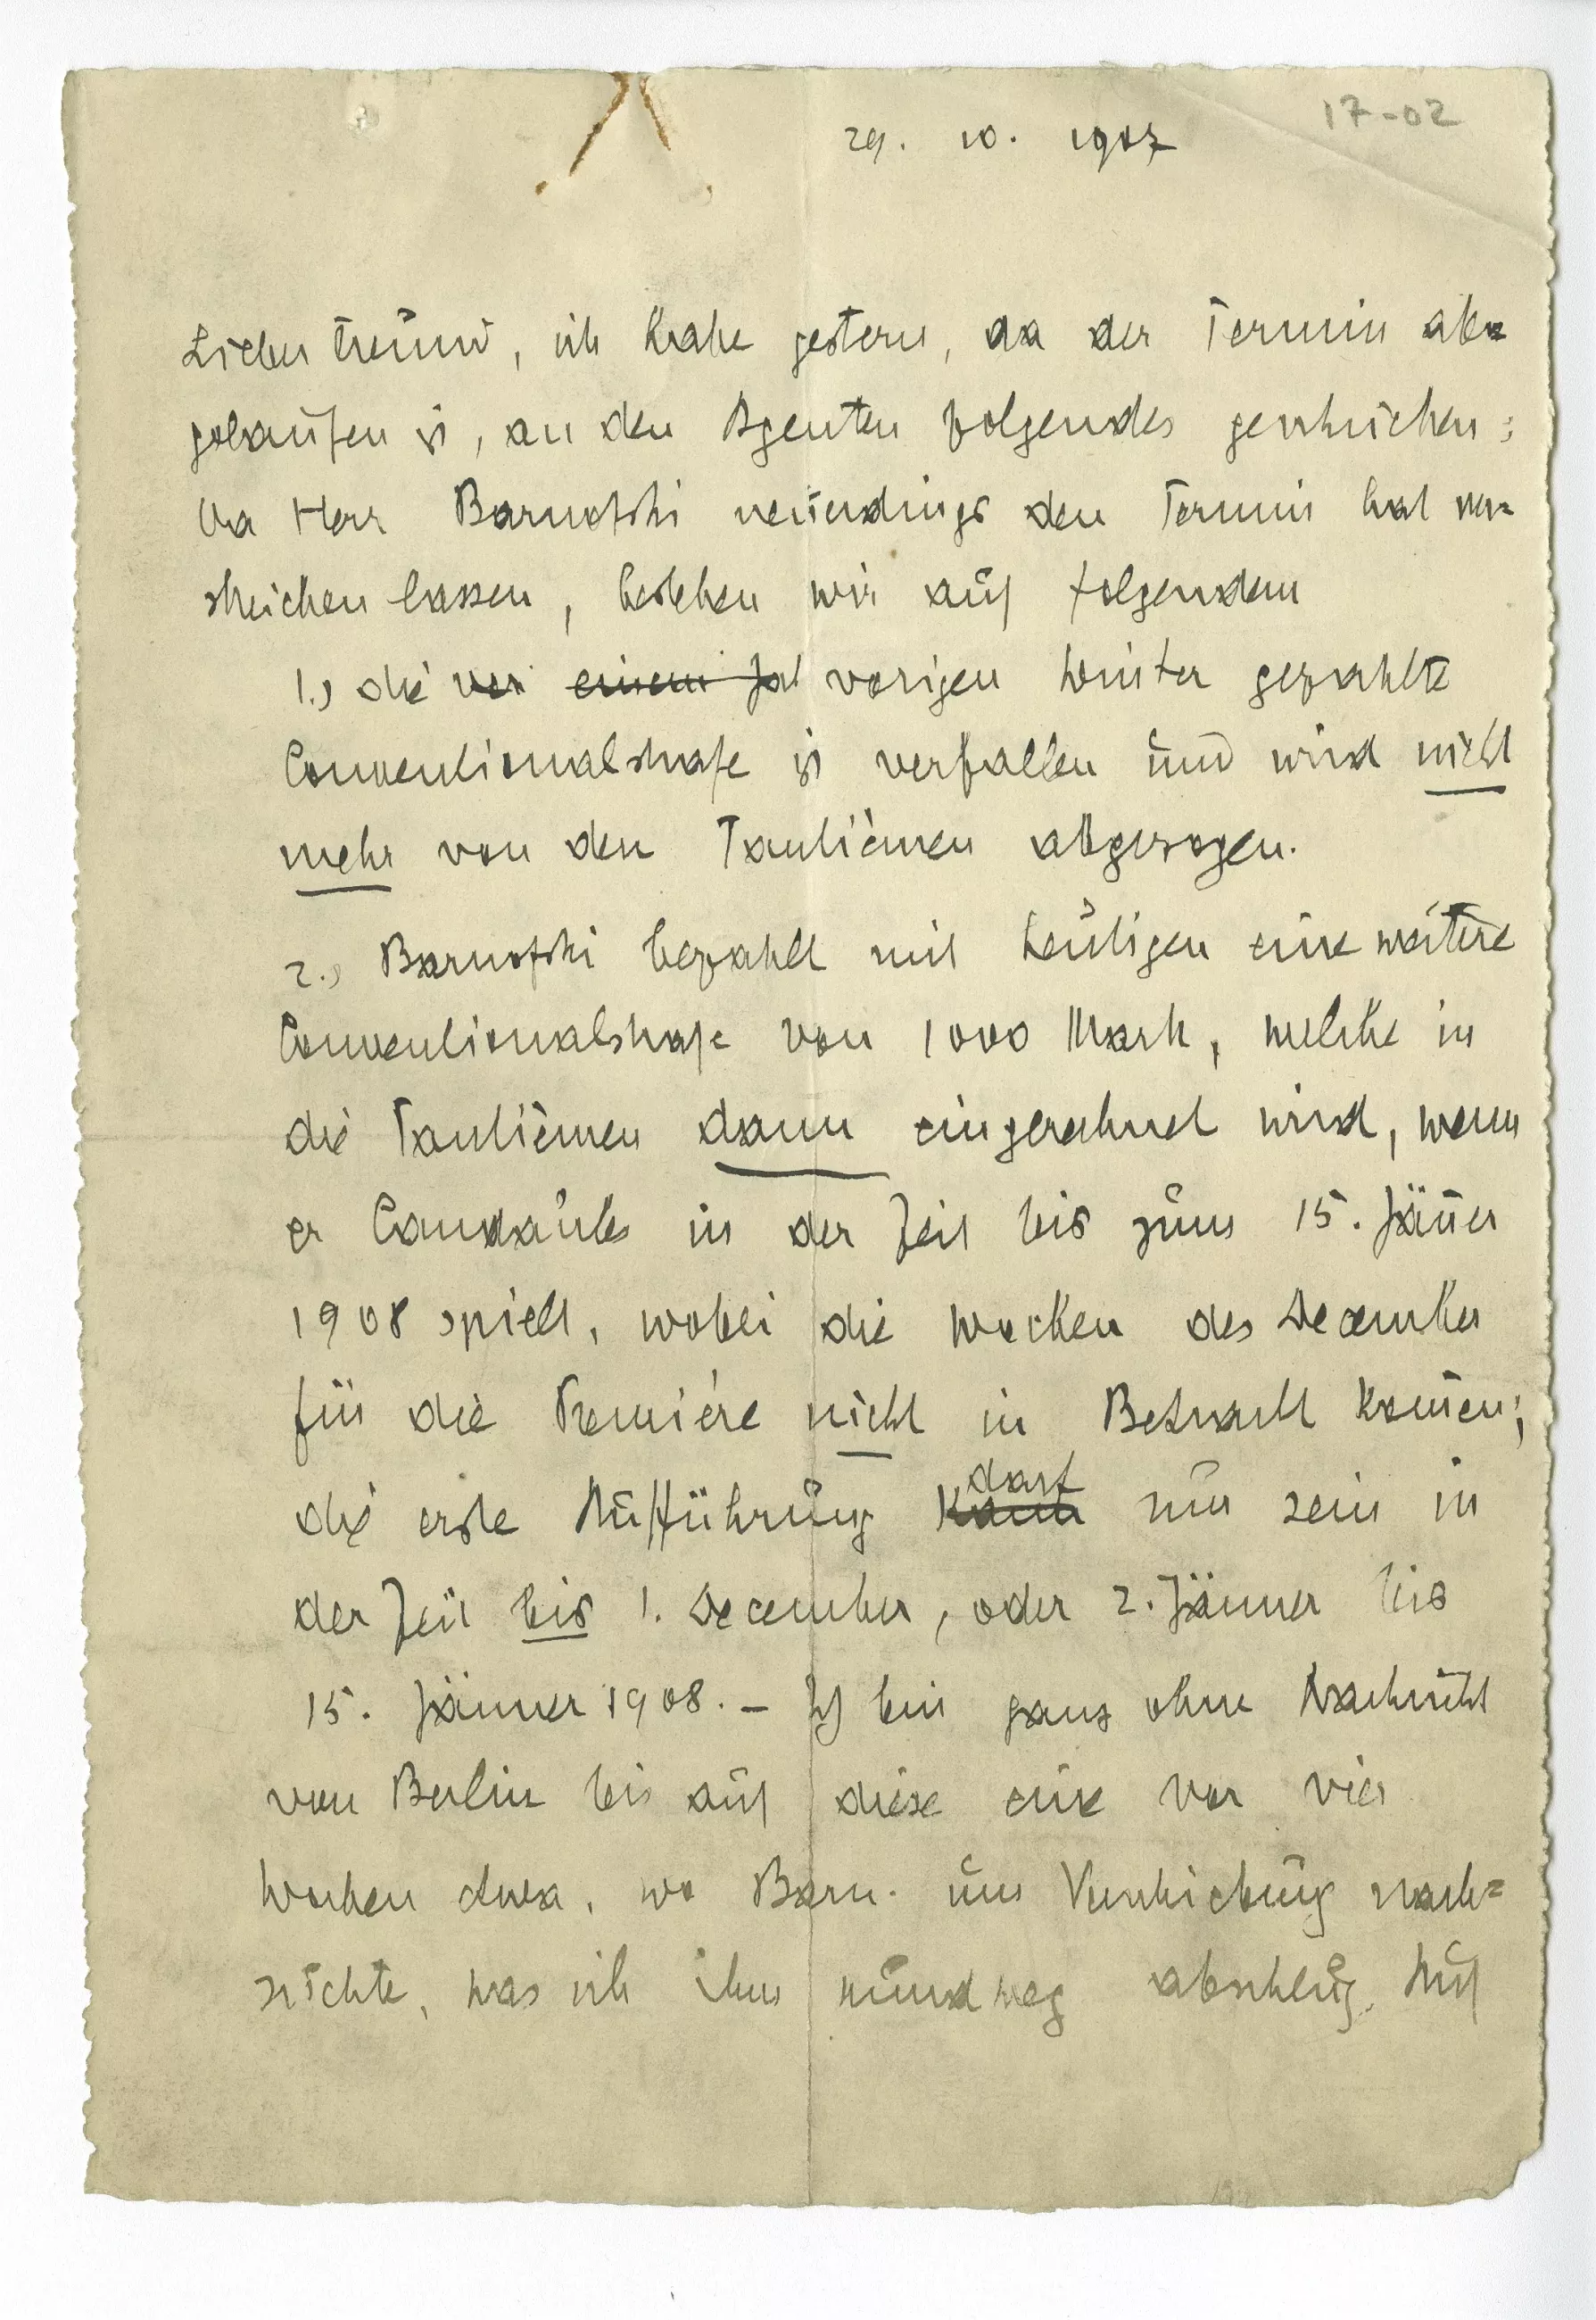 17-02
29. 10. 1907
Lieber Freund, ich habe gestern, da der Termin ab=
gelaufen ist, an den Agenten folgendes geschrieben:
Da Herr Barnofski neuerdings den Termin hat ver=
streichen lassen, bestehen wir auf folgendem
1.) die vor einem Jal vorigen Winter gezahlte
Conventionalstrafe ist verfallen und wird nicht
mehr von den Tantièmen abgezogen.
2.) Barnofski bezahlt mit heutigen eine weitere
Conventionalstrafe von 1000 Mark, welche in
die Tantièmen dann eingerechnet wird, wenn
er Candaules in der Zeit bis zum 15. Jäner
1908 spielt, wobei die Wochen des December
für die Première nicht in Betracht komen;
die erste Aufführung kann darf nur sein in
der Zeit bis 1. December, oder 2. Jänner bis
15. Jänner 1908. – Ich bin ganz ohne Nachricht
von Berlin bis auf diese eine vor vier
Wochen etwa, wo Barn. um Verschiebung nach=
suchte, was ich ihm rundweg abschlug. Auf